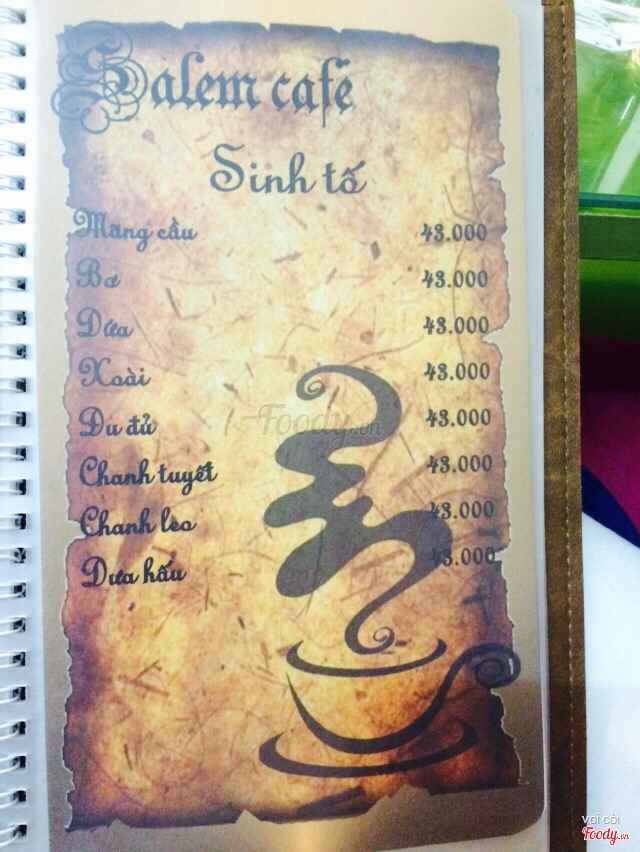 Salem café
Sinh tố
Mãng cầu 43.000
Bơ 43.000
Dứa 43.000
Xoài 43.000
Đu đủ 43.000
Chanh tuyết 43.000
Chanh leo 43.000
Dưa hấu 43.000
Foody.vn
voi còi
Foody.vn